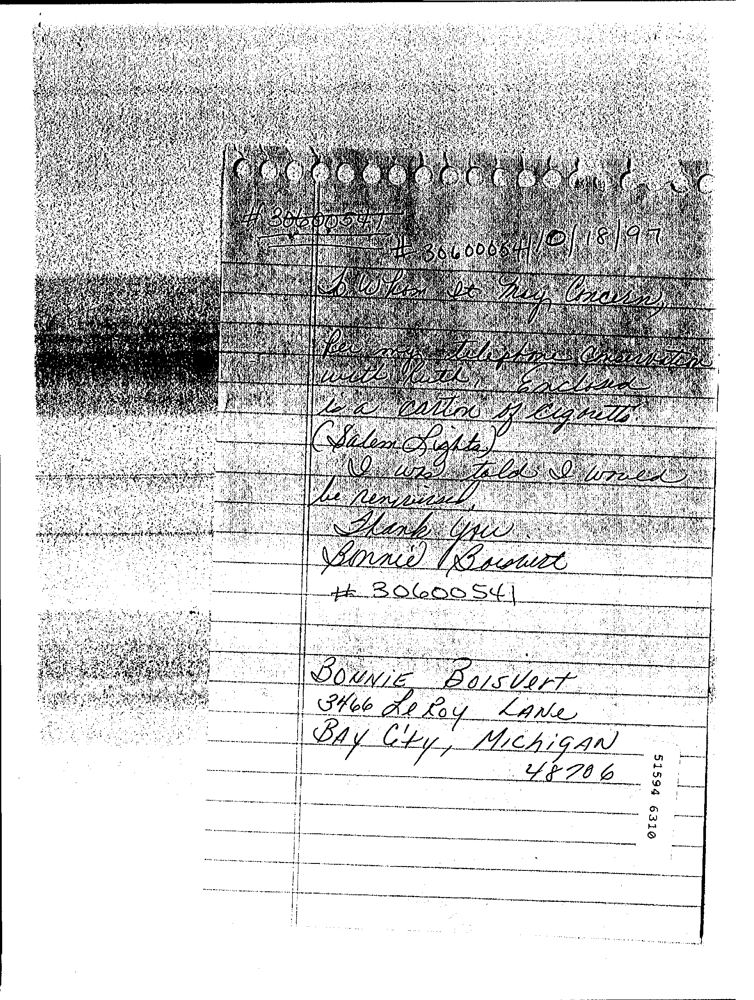 # 30600541
# 30600054 10/18/97
To Whom It May Concern,
Per my telephone Conversation
with Ruth, Enclosed
is a carton of Cigaretts.
(Salem Lights)
I was told I would
be
Thank You
Bonnie Boisvert
# 30600541
BONNIE BOISVert
3466 LeRoy LANe
BAY City, MichigAN
48706
51594 6310